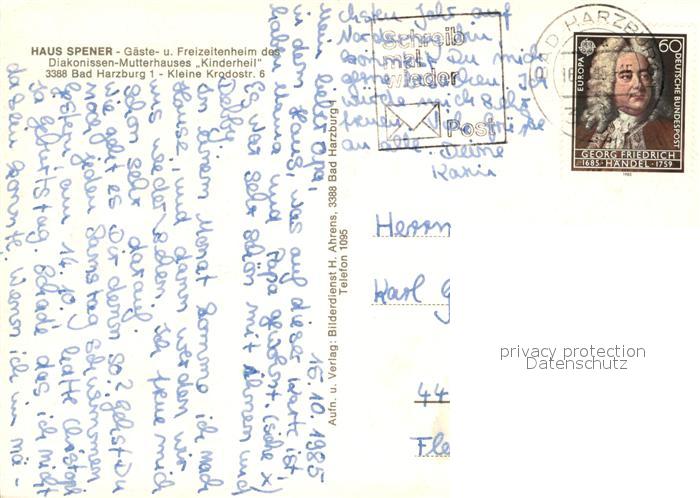 HAUS SPENER - Gäste- u. Freizeitenheim des
Diakonissen-Mutterhauses „Kinderheil"
3388 Bad Harzburg 1 - Kleine Krodostr. 6
16.10.1985
Mein lieber Opa!
in dem Haus, was auf dieser Karte ist,
haben Mama und Papa gewohnt. (siehe x)
Es war sehr schön mit ihnen und
Detlef.
In einem Monat komme ich nach
Hause, und dann werden wir
uns wiedersehen. Ich freue mich
schon sehr darauf.
Wie geht es Dir denn so? Gehst Du
noch jeden Samstag schwimmen
Gestern, am 14.10. hatte Christoph
ja Geburtstag. Schade das ich nicht
dasein konnte. Wenn ich im nä-
chsten Jahr auf
Norderney bin
kommst Du mich
Ich
würde mich sehr
freuen.
an alle. Deine
Karin
Aufn. u. Verlag: Bilderdienst H. Ahrens, 3388 Bad Harzburg 1
Telefon 1095
Schreib
mal
wieder
Post
BAD HARZBURG
EUROPA
60
DEUTSCHE BUNDESPOST
GEORG FRIEDRICH
1685 · HÄNDEL · 1759
1985
Herrn
Karl G
44
Fle
privacy protection
Datenschutz